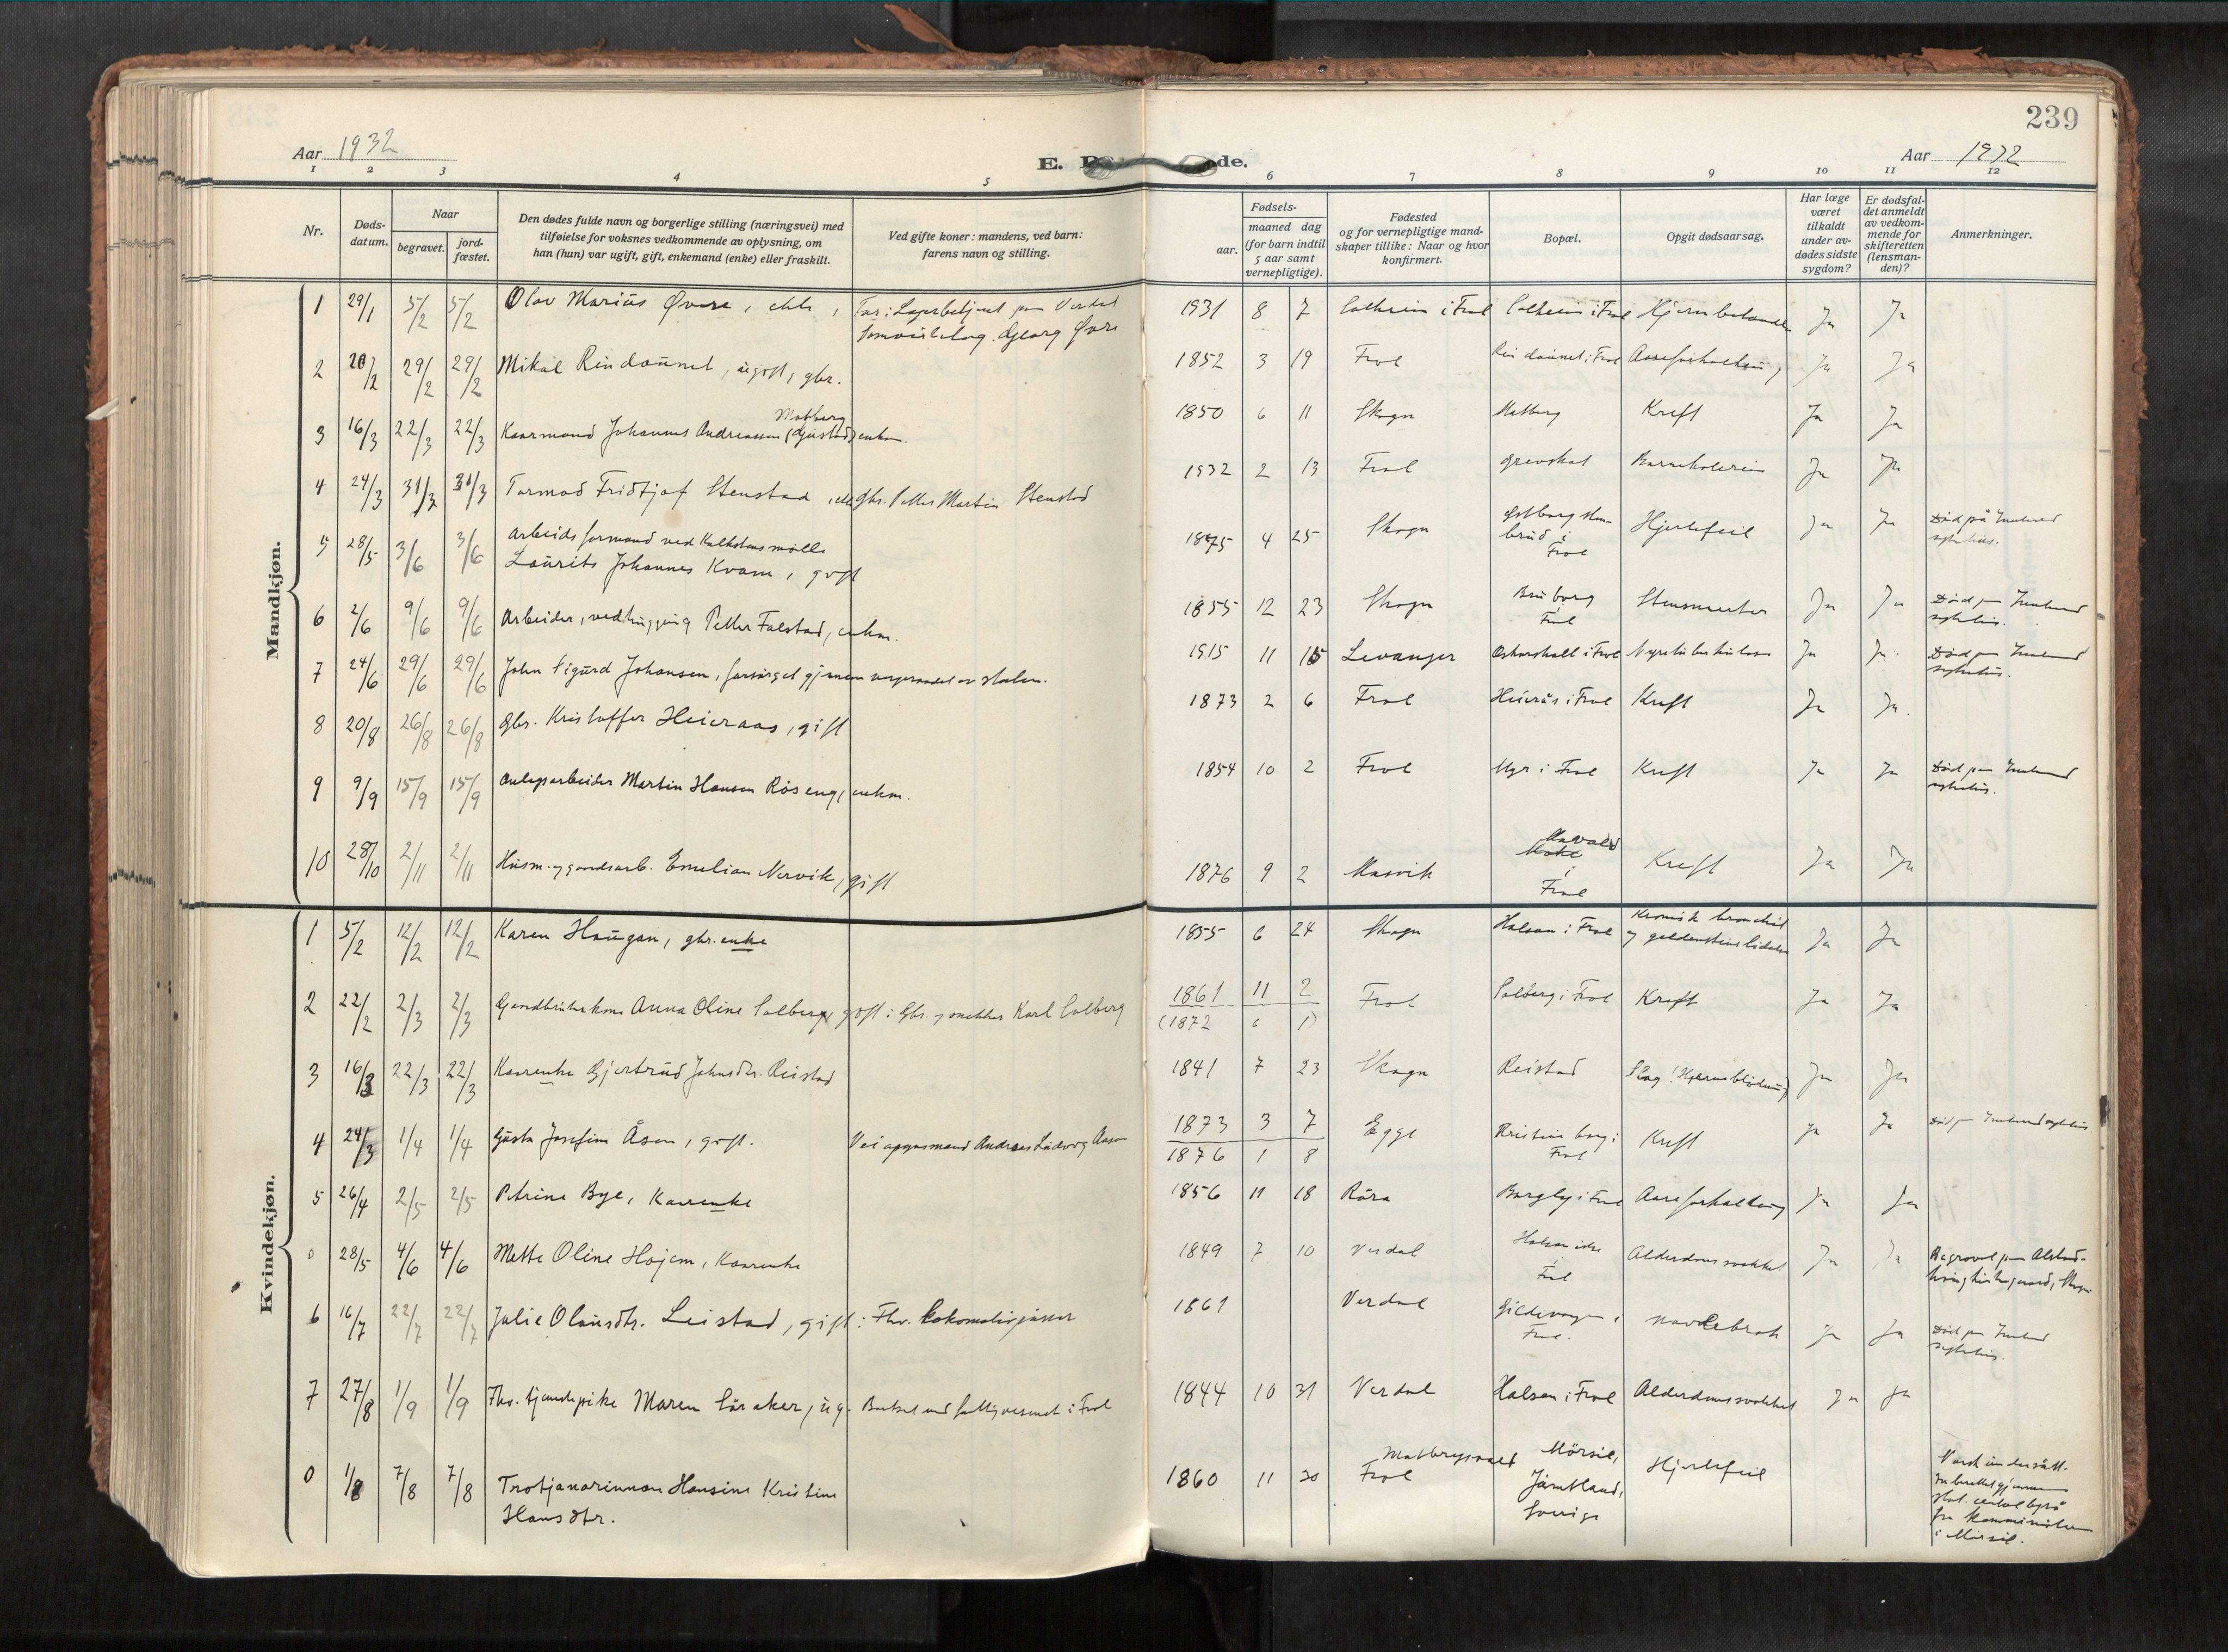 239
Aar 1932
E. D de.
Aar 1932
1 2 3 4 5 6 7 8 9 10 11 12
Nr.
Døds-
datum.
Naar
begravet.
jord-
fæstet.
Den dødes fulde navn og borgerlige stilling (næringsvei) med
tilføielse for voksnes vedkommende av oplysning, om
han (hun) var ugift, gift, enkemand (enke) eller fraskilt.
Ved gifte koner: mandens, ved barn:
farens navn og stilling.
Fødsels-
aar.
maaned dag
(for barn indtil
5 aar samt
vernepligtige).
Fødested
og for vernepligtige mand-
skaper tillike: Naar og hvor
konfirmert.
Bopæl.
Opgit dødsaarsag.
Har læge
været
tilkaldt
under av-
dødes sidste
sygdom?
Er dødsfal-
det anmeldt
av vedkom-
mende for
skifteretten
(lensman-
den)?
Anmerkninger.
Mandkjøn.
1 29/1 5/2 5/2 Olav Marius Øvre, ekte, Far: Lagerbetjent paa Verdal
Samvirkelag. Georg Øvre
1931 8 7 i Frol i Frol Ja Ja
2 20/2 29/2 29/2 Mikal Rindaunet, ugift, gbr. 1852 3 19 Frol Rindaunet i Frol Aareforkalkning Ja Ja
Matberg
3 16/3 22/3 22/3 Kaarmand Johannes Andreassen (Gjustad) enkem. 1850 6 11 Skogn Matberg Kreft Ja Ja
4 24/3 31/3 31/3 Tormod Fridtjof Stenstad, ekte gbr. Petter Martin Stenstad 1932 2 13 Frol Ja Ja
5 28/5 3/6 3/6 Arbeidsformand ved Kalkstensmølle
Laurits Johannes Kvam, gift 1875 4 25 Skogn i
Frol Hjertefeil Ja Ja Død på Innherred
sykehus.
6 2/6 9/6 9/6 Arbeider, vedhugging Petter Falstad, enkm. 1855 12 23 Skogn Bruborg
i Frol Ja Ja Død paa Innherred
sykehus.
7 24/6 29/6 29/6 John Sigurd Johansen, forsørget gjennem vergeraadet av staten. 1915 11 15 Levanger Oskarshall i Frol Nyretuberkulose Ja Ja. Død paa Innherred
sykehus.
8 20/8 26/8 26/8 Gbr. Kristoffer Heieraas, gift 1873 2 6 Frol Heierås i Frol Kreft Ja Ja.
9 9/9 15/9 15/9 Anlegsarbeider Martin Hansen Røseng, enkm. 1854 10 2 Frol Myr i Frol Kreft Ja Ja Død paa Innherred
sykehus.
10 28/10 2/11 2/11 Husm. og gaardsarb. Emelian Nervik, gift 1876 9 2
i
Frol Kreft Ja Ja
Kvindekjøn.
1 5/2 12/2 12/2 Karen Haugan, gbr. enke 1855 6 24 Skogn Halsan i Frol Kronisk bronchit
og galdenstenslidelse Ja Ja
2 22/2 2/3 2/3 Gaardbrukerkone Anna Oline Salberg gift: Gbr. og snekker Karl Salberg 1861 11 2 Frol Salberg i Frol Kreft Ja Ja
(1872 6 1)
3 16/3 22/3 22/3 Kaarenke Gjertrud Johnsdtr. Reistad 1841 7 23 Skogn Reistad Slag (Hjerneblødning) Ja Ja
4 24/3 1/4 1/4 Gusta Josefine Åsen, gift. Andreas Ludvig Aasen 1873 3 7 Egge Kristineborg i
Frol Kreft Ja Ja Død paa Innherred sykehus
1876 1 8
5 26/4 2/5 2/5 Petrine Bye, Kaarenke 1856 11 18 Røra Borgly i Frol Aareforkalkning Ja Ja
0 28/5 4/6 4/6 Mette Oline Hojem, Kaarenke 1849 7 10 Verdal Halsan
i
Frol Alderdomssvakhet Ja Ja Begravet paa Alstad-
haug kirkegaard, Skogn
6 16/7 22/7 22/7 Julie Olausdtr. Leistad, gift: Fhv. Lokomotivpusser 1861 Verdal i
Frol. navlebrok Ja Ja Død paa Innherred
sykehus.
7 27/8 1/9 1/9 Fhv. tjenestepike Maren Såraker, ug. Bortsat ved fattigvesenet i Frol 1844 10 31 Verdal Halsan i Frol Alderdomssvakhet Ja Ja
0 1/8 7/8 7/8 Trotjanarinnan Hansine Kristine
Hansdtr. 1860 11 20 Matbergsvald
Frol Mörsil,
Jämtland,
Sverige Hjertefeil Norsk undersått.
Innberettet gjennem
stat. centralbyrå
fra Kommunisteren
i Mörsil.